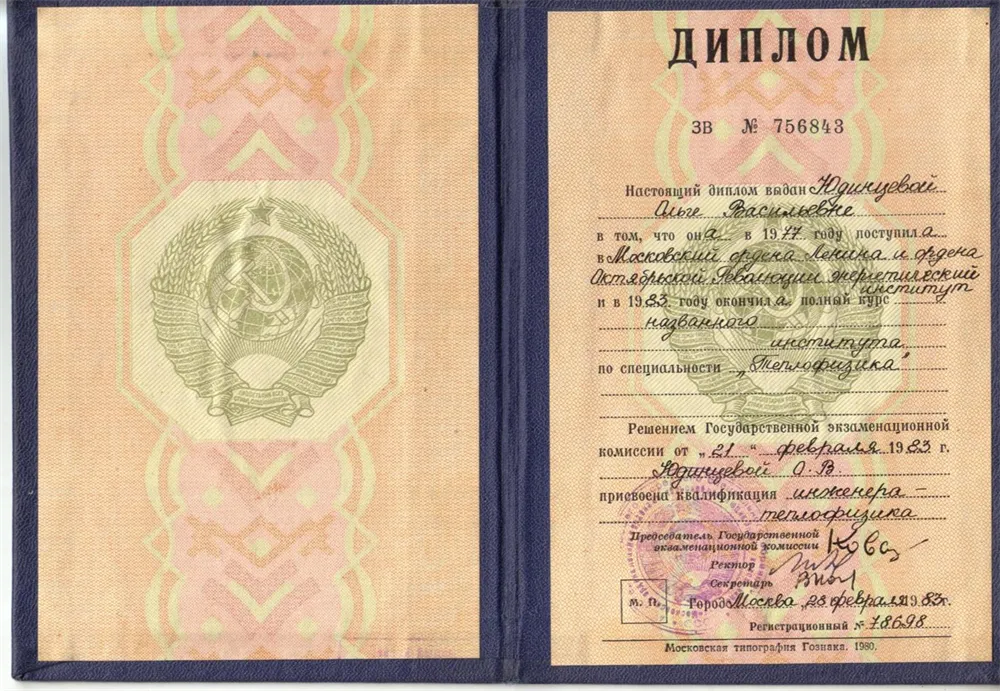 ДИПЛОМ
ЗВ № 756843
Настоящий диплом выдан Юдинцевой
Ольге Васильевне
в том, что она в 1977 году поступила
в Московский ордена Ленина и ордена
Октябрьской Революции энергетический
институт
и в 1983 году окончила полный курс
названного
института
по специальности „Теплофизика"
Решением Государственной экзаменационной
комиссии от „21" февраля 1983 г.
Юдинцевой О.В.
присвоена квалификация инженера-
теплофизика
Председатель Государственной
экзаменационной комиссии
Ректор
Секретарь
М. П. Город Москва „28 февраля 1983г.
Регистрационный № 78698
Московская типография Гознака. 1980.